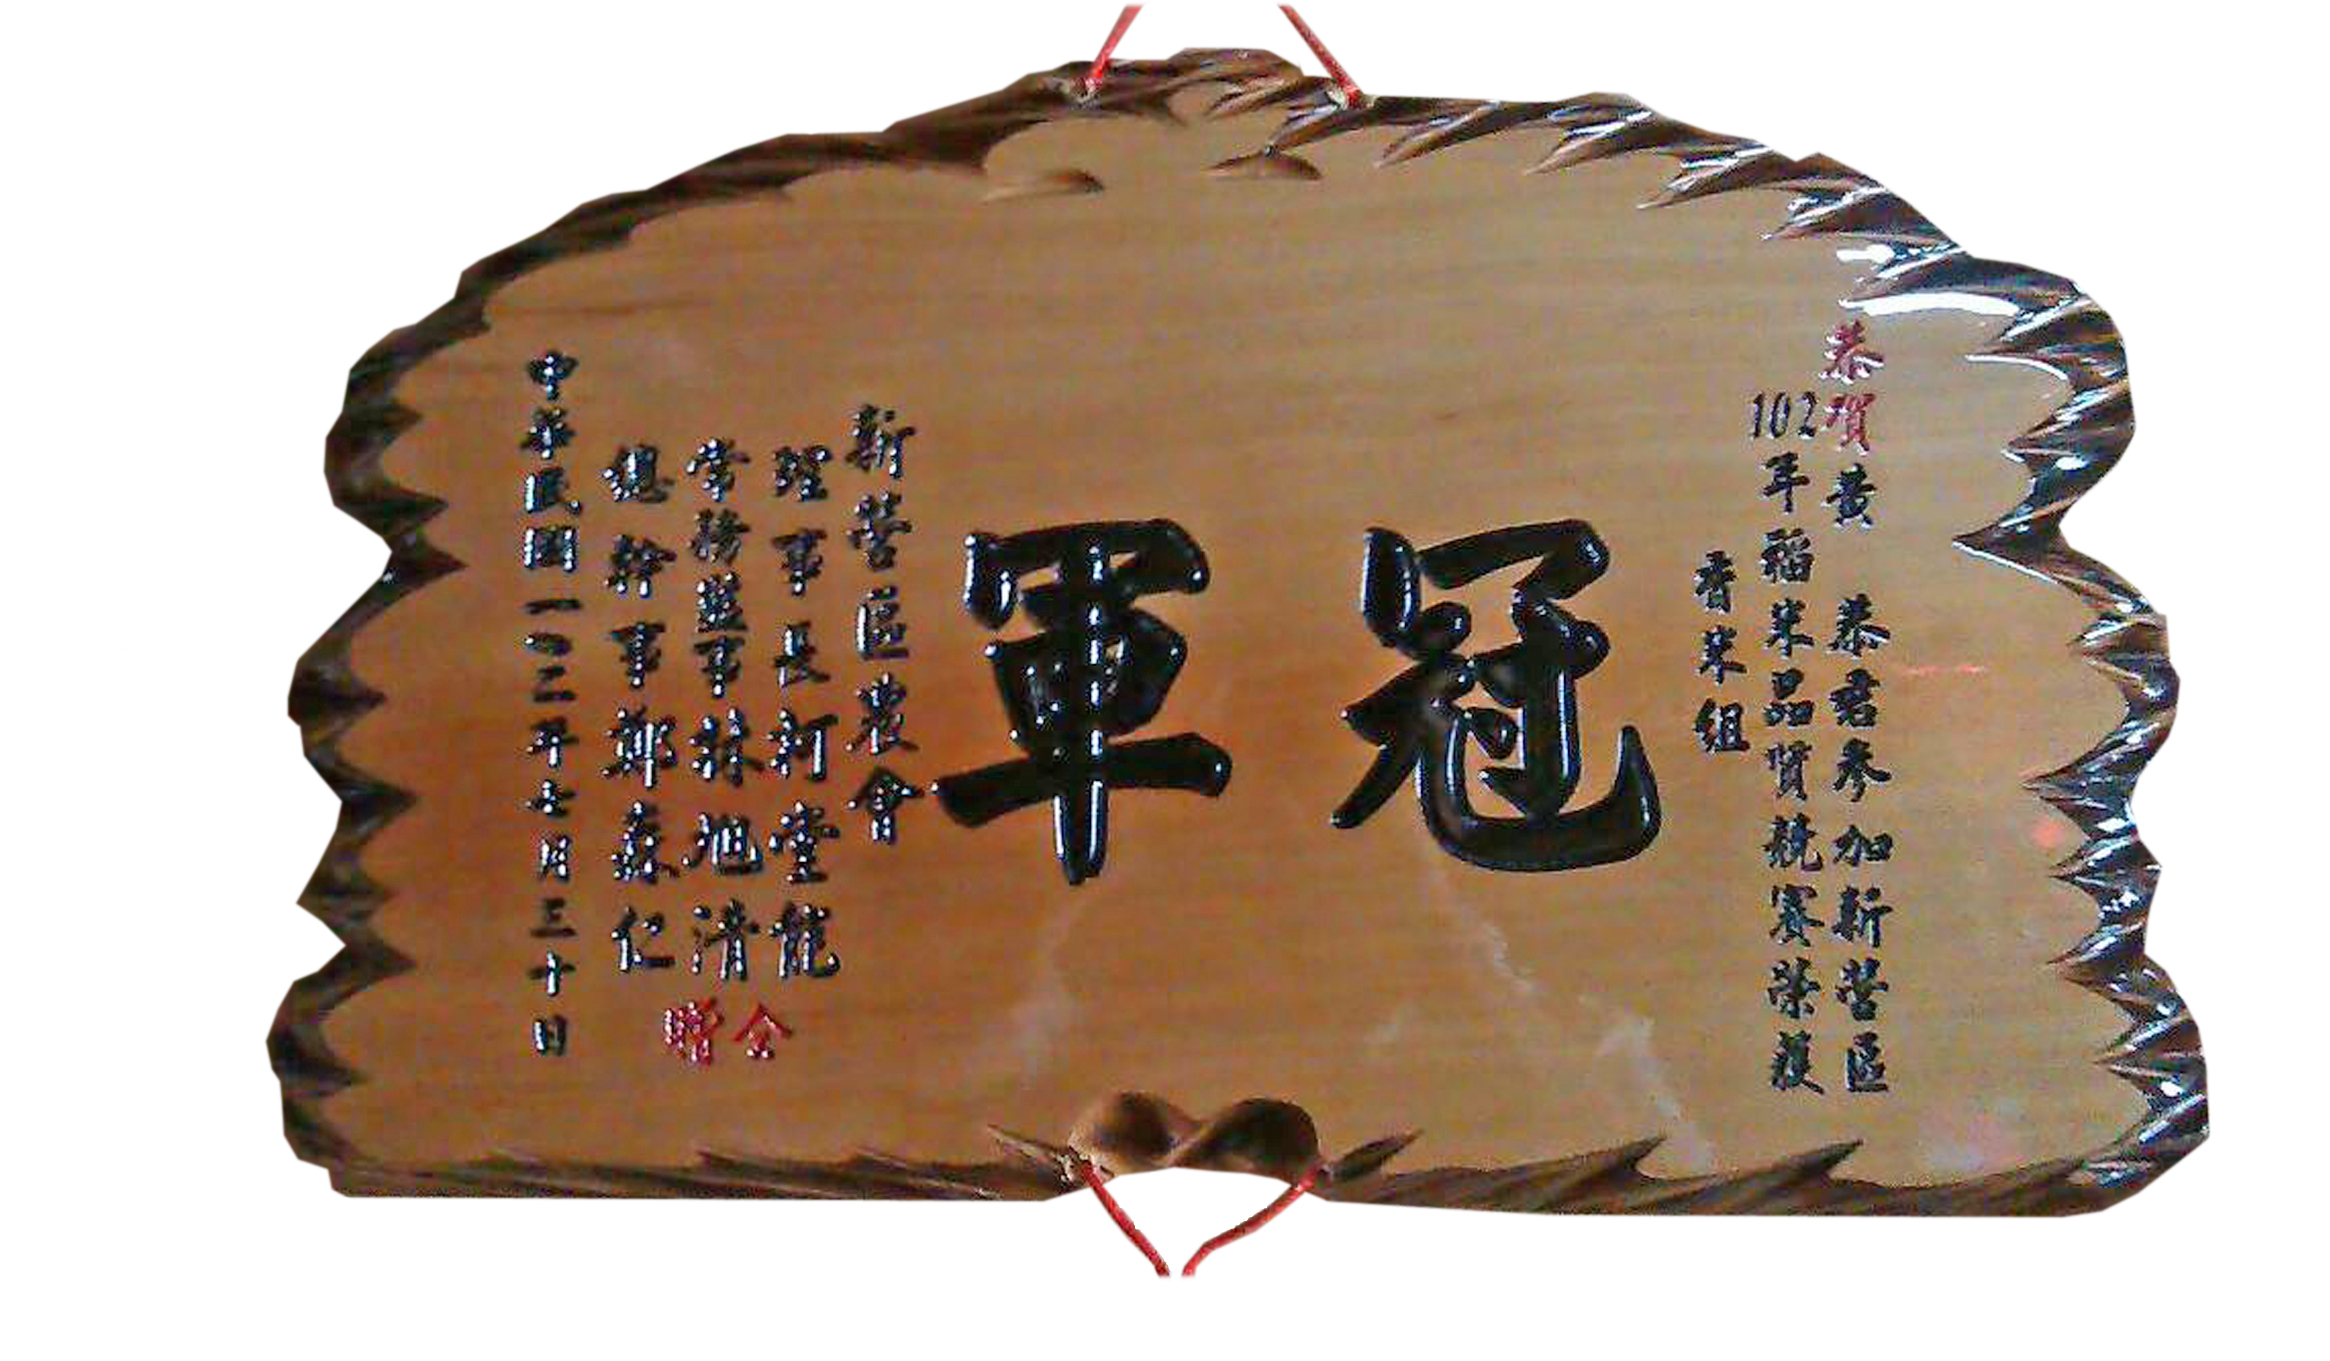 恭賀黃 恭君參加新營區
102年稻米品質競賽榮獲
香米組
冠軍
新營區農會
理事長柯堂龍
常務監事林旭清
總幹事鄭森仁
仝贈
中華民國一〇二年七月三十日